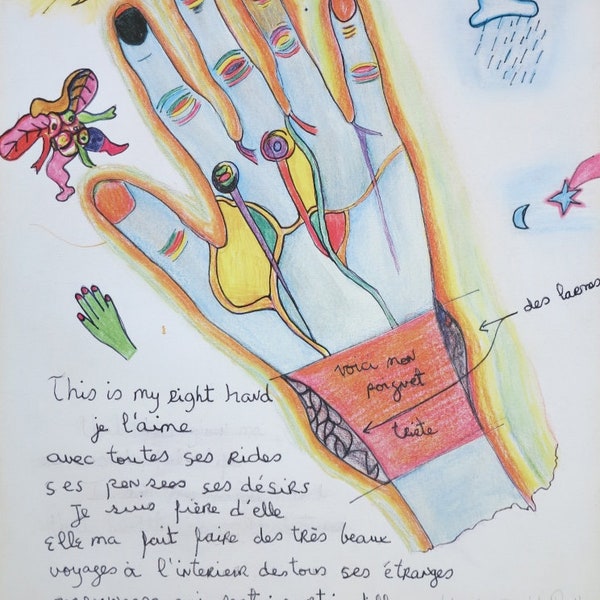 des larmes
voici mon
poignet
triste
This is my right hand
je l'aime
avec toutes ses rides
ses pensees ses désirs
Je suis fière d'elle
Elle ma fait faire des très beaux
voyages à l'interieur des tous ses étranges